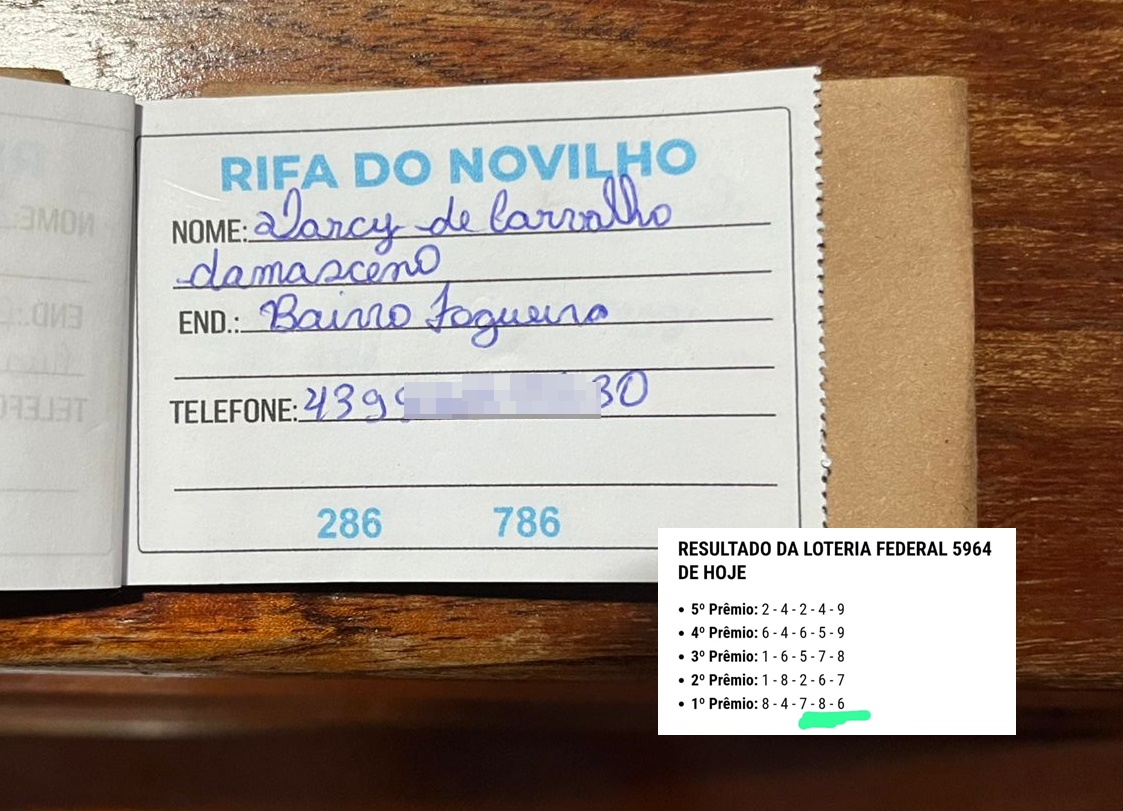 RIFA DO NOVILHO
NOME: Darcy de Carvalho
damasceno
END.: Bairro Fogueira
TELEFONE: 4399 30
286 786
NOME
END.:
TELEF
RESULTADO DA LOTERIA FEDERAL 5964
DE HOJE
• 5º Prêmio: 2 - 4 - 2 - 4 - 9
• 4º Prêmio: 6 - 4 - 6 - 5 - 9
• 3º Prêmio: 1 - 6 - 5 - 7 - 8
• 2º Prêmio: 1 - 8 - 2 - 6 - 7
• 1º Prêmio: 8 - 4 - 7 - 8 - 6